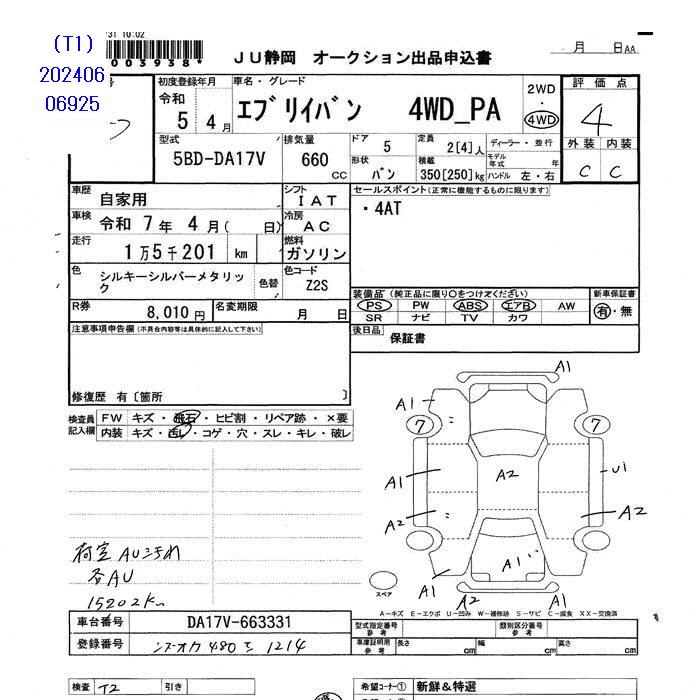 31 10:02
(T1)
202406
06925
*003938*
JU静岡 オークション出品申込書
月 日 AA
初度登録年月
令和
5 年 4 月
車名・グレード
エブリイバン 4WD_PA
2WD
・
4WD
評価点
4
外装 内装
C C
型式
5BD-DA17V
排気量
660
CC
ドア
5
形状
バン
定員
2[4]人
積載
350[250]kg
ディーラー・並行
モデル年式 年
ハンドル 左・右
車歴
自家用
シフト
IAT
セールスポイント(正常に機能するものに限ります)
・4AT
車検
令和 7 年 4 月 ( 日)
冷房
AC
走行
1万5千201 km
燃料
ガソリン
色
シルキーシルバーメタリック
色替
色コード
Z2S
R券
8,010 円
名変期限
月 日
装備品 (純正品に限り〇をつけてください)
PS PW ABS エアB AW
SR ナビ TV カワ
新車保証書
有・無
注意事項申告欄(不具合内容等は具体的に記入して下さい)
後日品
保証書
修復歴 有〔箇所 〕
検査員
記入欄
FW キズ・飛石・ヒビ割・リペア跡・×要
内装 キズ・汚レ・コゲ・穴・スレ・キレ・破レ
A1
A1
7
7
A1
A2
U1
A2
A2
A1
A1
A2
A1
スペア
荷室 AU汚れ
各AU
15202km
A-キズ E-エクボ U-凹み W-補修跡 S-サビ C-腐食 XX-交換済
車台番号
DA17V-663331
登録番号
シズオカ 480 え 1214
型式指定番号
参考
類別区分番号
参考
車庫証明用
参考
長さ cm
幅 cm
高さ cm
検査 T2
引き
希望コーナー① 新鮮&特選